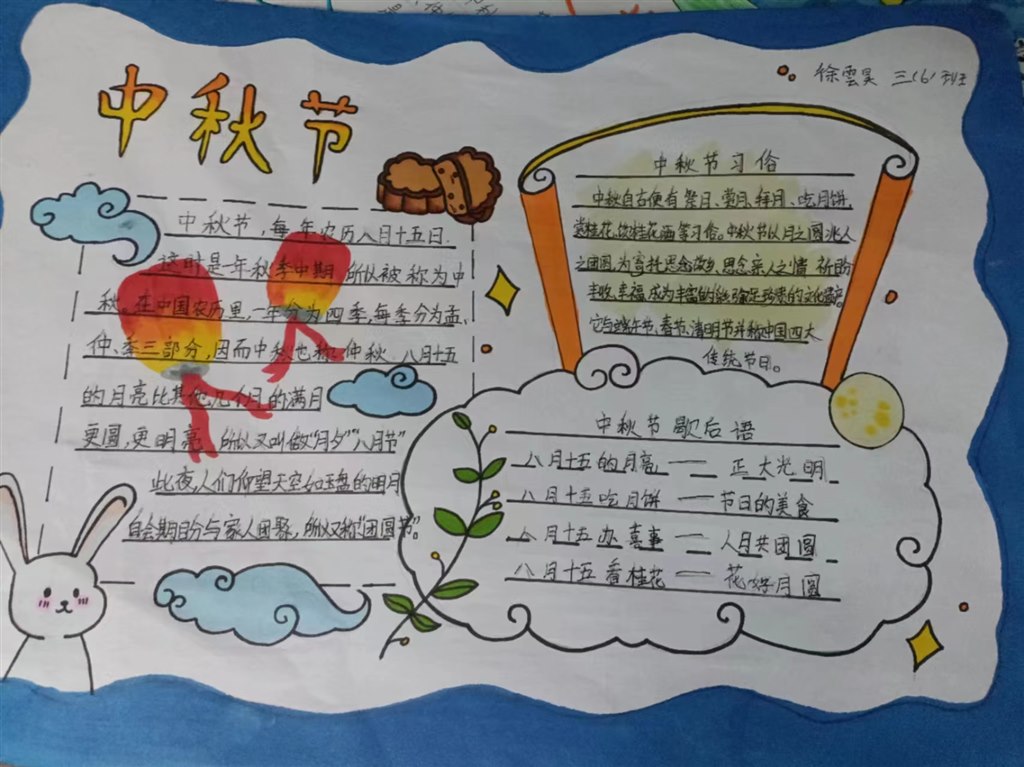 中秋节
徐雲昊 三(6)班
中秋节,每年农历八月十五日.
这时是一年秋季中期,所以被称为中
秋。在中国农历里,一年分为四季,每季分为孟、
仲、季三部分,因而中秋也称仲秋。八月十五
的月亮比其他几个月的满月
更圆,更明亮,所以又叫做“月夕”“八月节”
此夜,人们仰望天空如玉盘的明月
自会期盼与家人团聚,所以又称“团圆节”。
中秋节习俗
中秋自古便有祭月、赏月、拜月、吃月饼,
赏桂花、饮桂花酒等习俗。中秋节以月之圆兆人
之团圆,为寄托思念故乡,思念亲人之情,祈盼
丰收、幸福,成为丰富的 珍贵的文化遗产。
它与端午节、春节、清明节并称中国四大
传统节日。
中秋节歇后语
八月十五的月亮——正大光明
八月十五吃月饼——节日的美食
八月十五办喜事——人月共团圆
八月十五看桂花——花好月圆